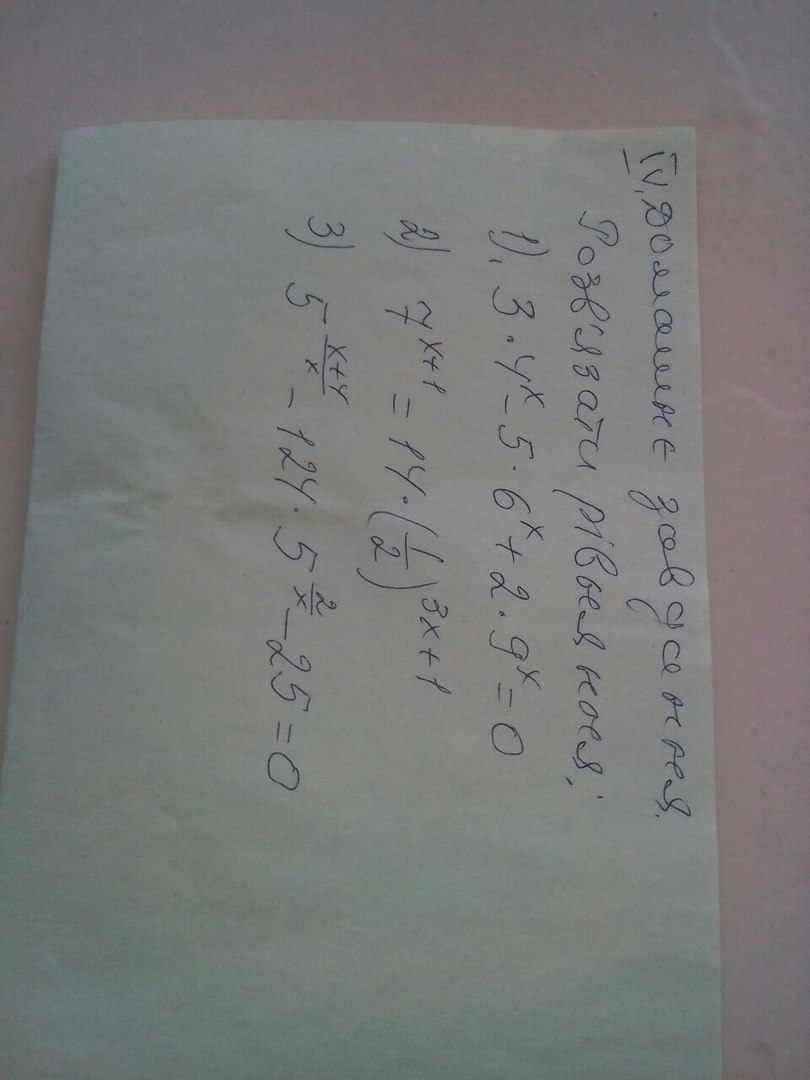 IV. Домашнє завдання.
Розв'язати рівняння:
1). 3·4^x - 5·6^x + 2·9^x = 0
2) 7^{x+1} = 14·(1/2)^{3x+1}
3) 5^{(x+4)/x} - 124·5^{2/x} - 25 = 0